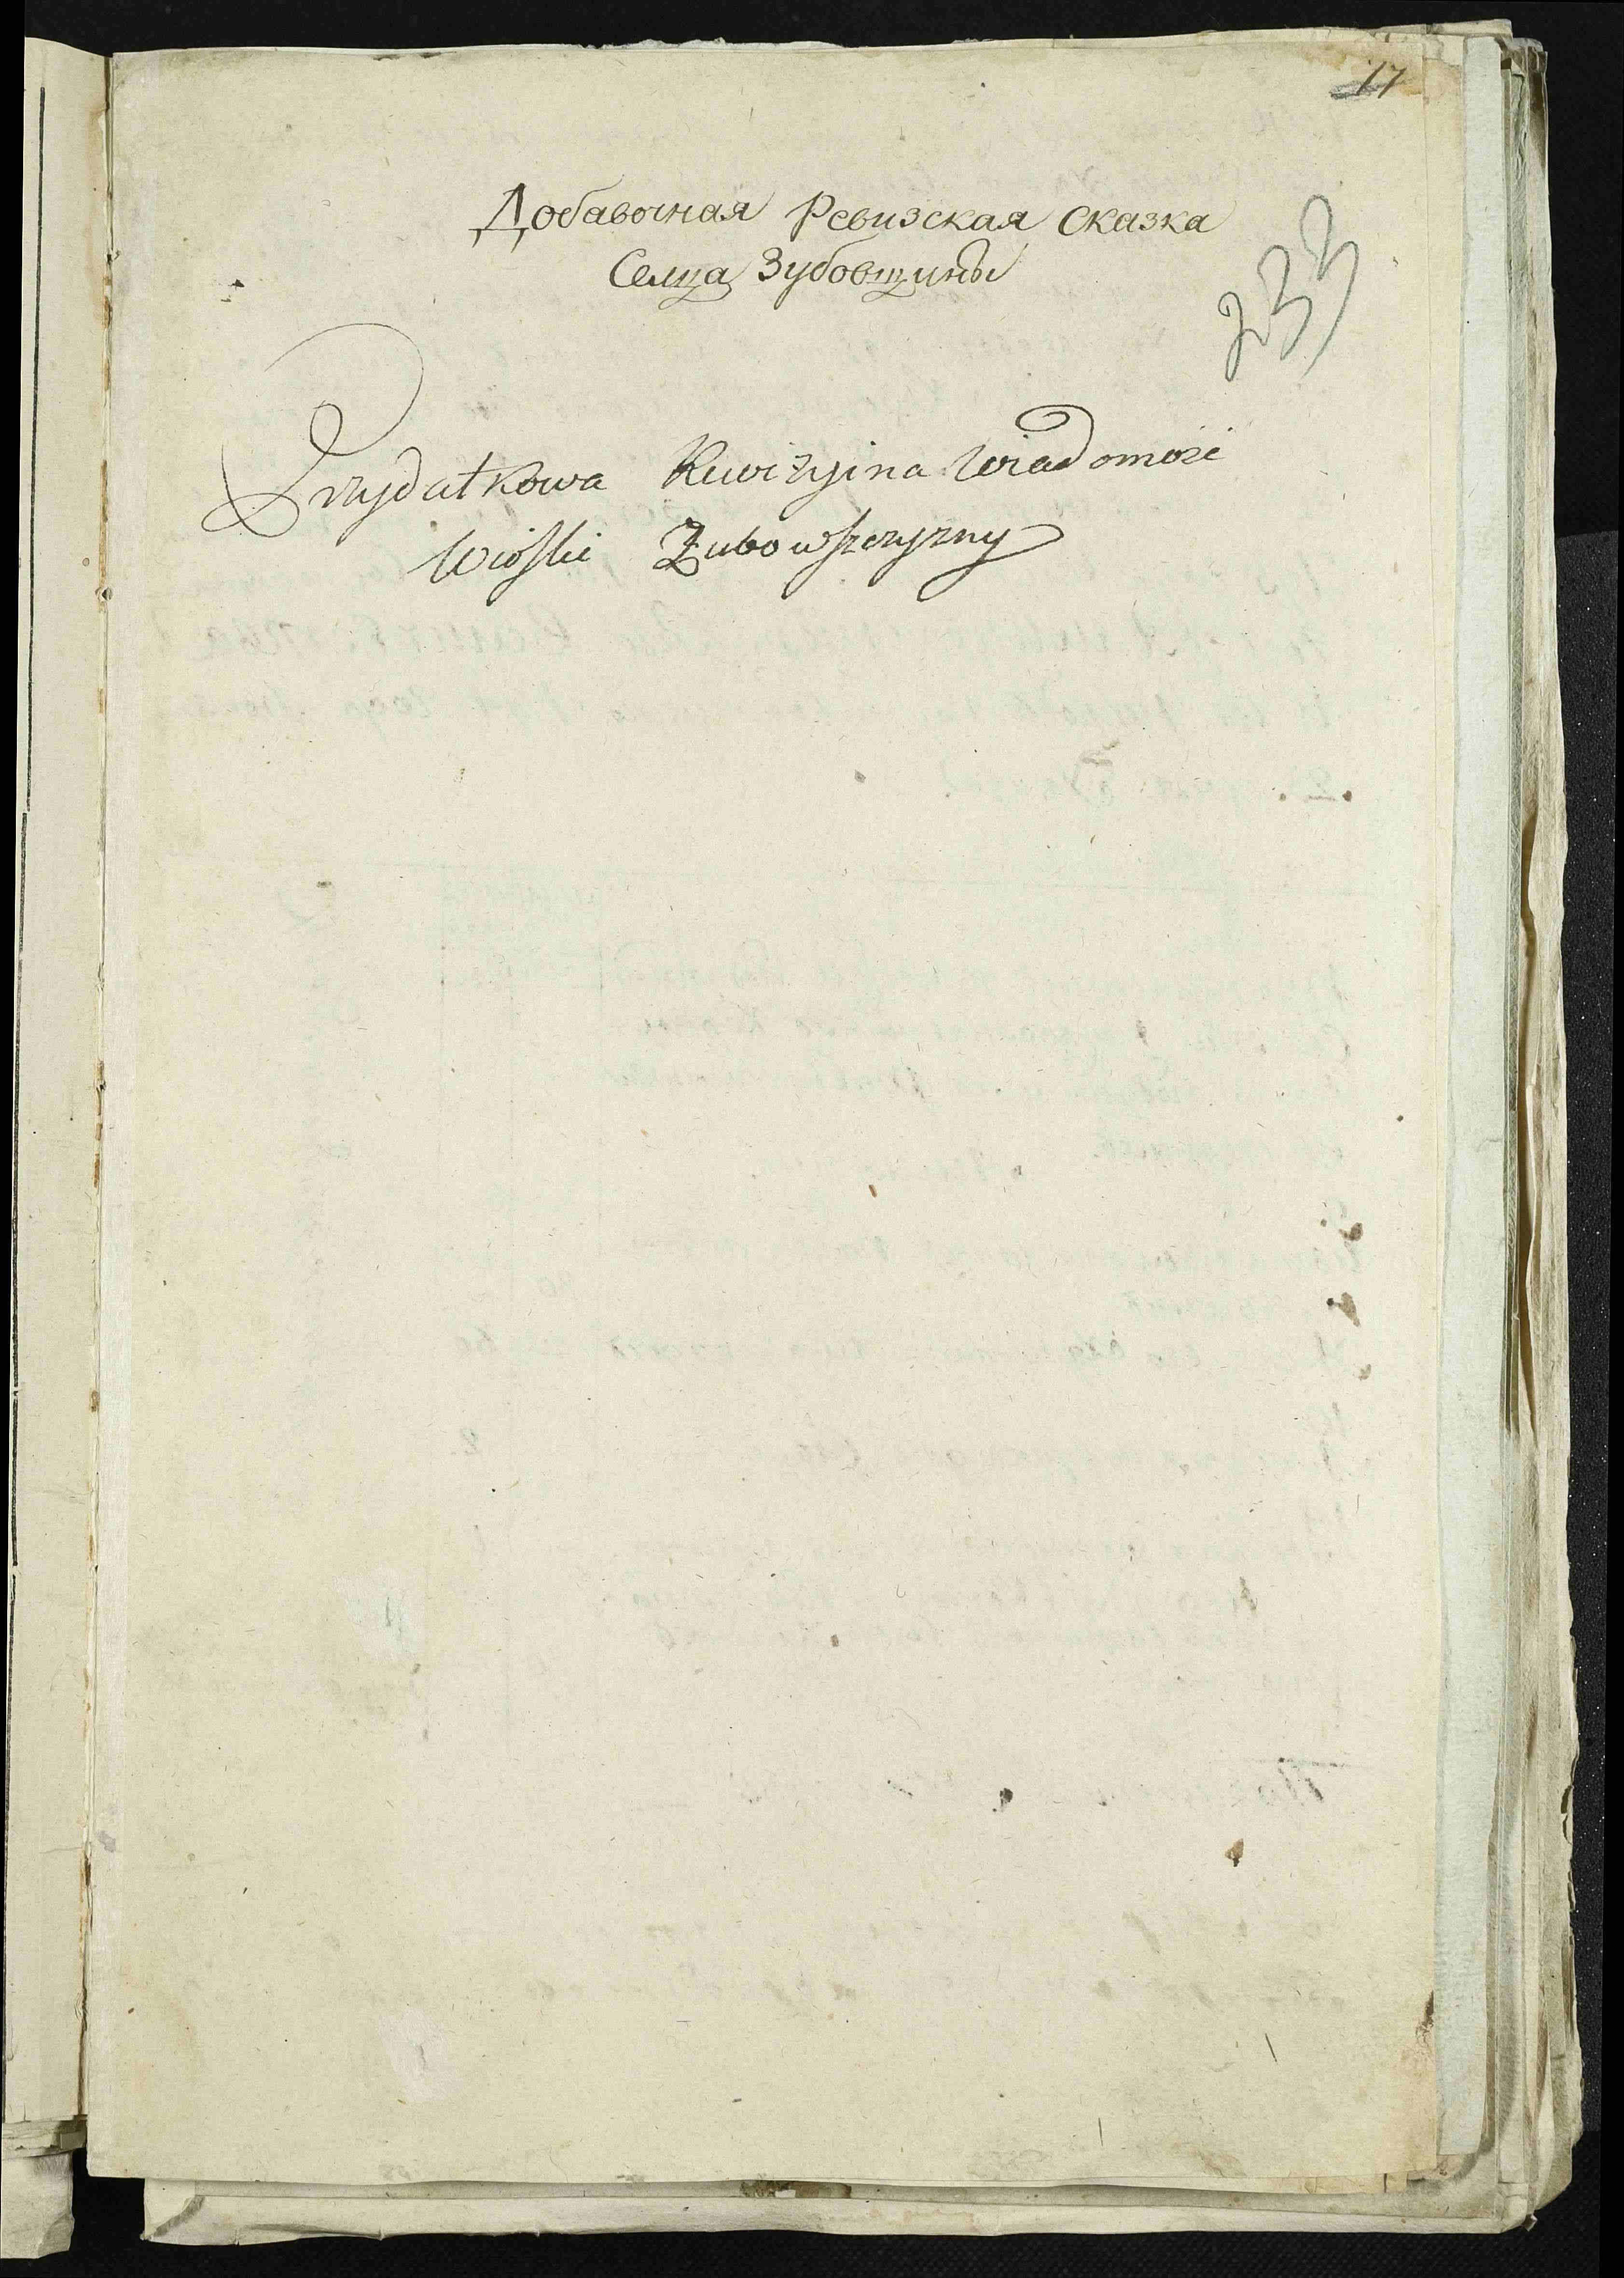 17
Добавочная Ревизская Сказка
Селца Зубовщины
233
Przydatkowa Rewizyina Wiadomość
Wioski Zubowszczyzny